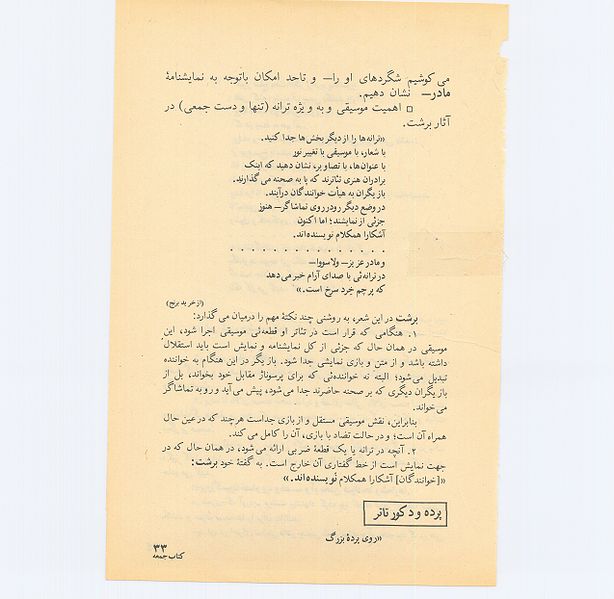 می‌کوشیم شگردهای او را— و تاحد امکان باتوجه به نمایشنامهٔ
مادر— نشان دهیم.
□ اهمیت موسیقی و به ویژه ترانه (تنها و دست جمعی) در
آثار برشت.
«ترانه‌ها را از دیگر بخش‌ها جدا کنید.
با شعار، با موسیقی با تغییر نور
با عنوان‌ها، با تصاویر، نشان دهید که اینک
برادران هنری تئاترند که پا به صحنه می‌گذارند.
بازیگران به هیأت خوانندگان درآیند.
در وضع دیگر رودرروی تماشاگر— هنوز
جزئی از نمایشند؛ اما اکنون
آشکارا همکلام نویسنده‌اند.
. . . . . . . . . . . . . . .
و مادر عزیز— ولاسووا—
در ترانه‌ئی با صدای آرام خبر می‌دهد
که پرچم خِرد سرخ است.»
(از خرید برنج)
برشت در این شعر، به روشنی چند نکتهٔ مهم را درمیان می‌گذارد:
۱. هنگامی که قرار است در تئاتر او قطعه‌ئی موسیقی اجرا شود، این
موسیقی در همان حال که جزئی از کل نمایشنامه و نمایش است باید استقلال
داشته باشد و از متن و بازی نمایشی جدا شود. بازیگر در این هنگام به خواننده
تبدیل می‌شود؛ البته نه خواننده‌ئی که برای پرسوناژ مقابل خود بخواند، بل از
بازیگران دیگری که بر صحنه حاضرند جدا می‌شود، پیش می‌آید و رو به تماشاگر
می‌خواند.
بنابراین، نقش موسیقی مستقل و از بازی جداست هرچند که در عین حال
همراه آن است؛ و در حالت تضاد با بازی، آن را کامل می‌کند.
۲. آنچه در ترانه یا یک قطعهٔ ضربی ارائه می‌شود، در همان حال که در
جهت نمایش است از خط گفتاری آن خارج است. به گفتهٔ خود برشت:
«[خوانندگان] آشکارا همکلام نویسنده‌اند.»
پرده و دکور تاتر
«روی پردهٔ بزرگ
۳۳
کتاب جمعه